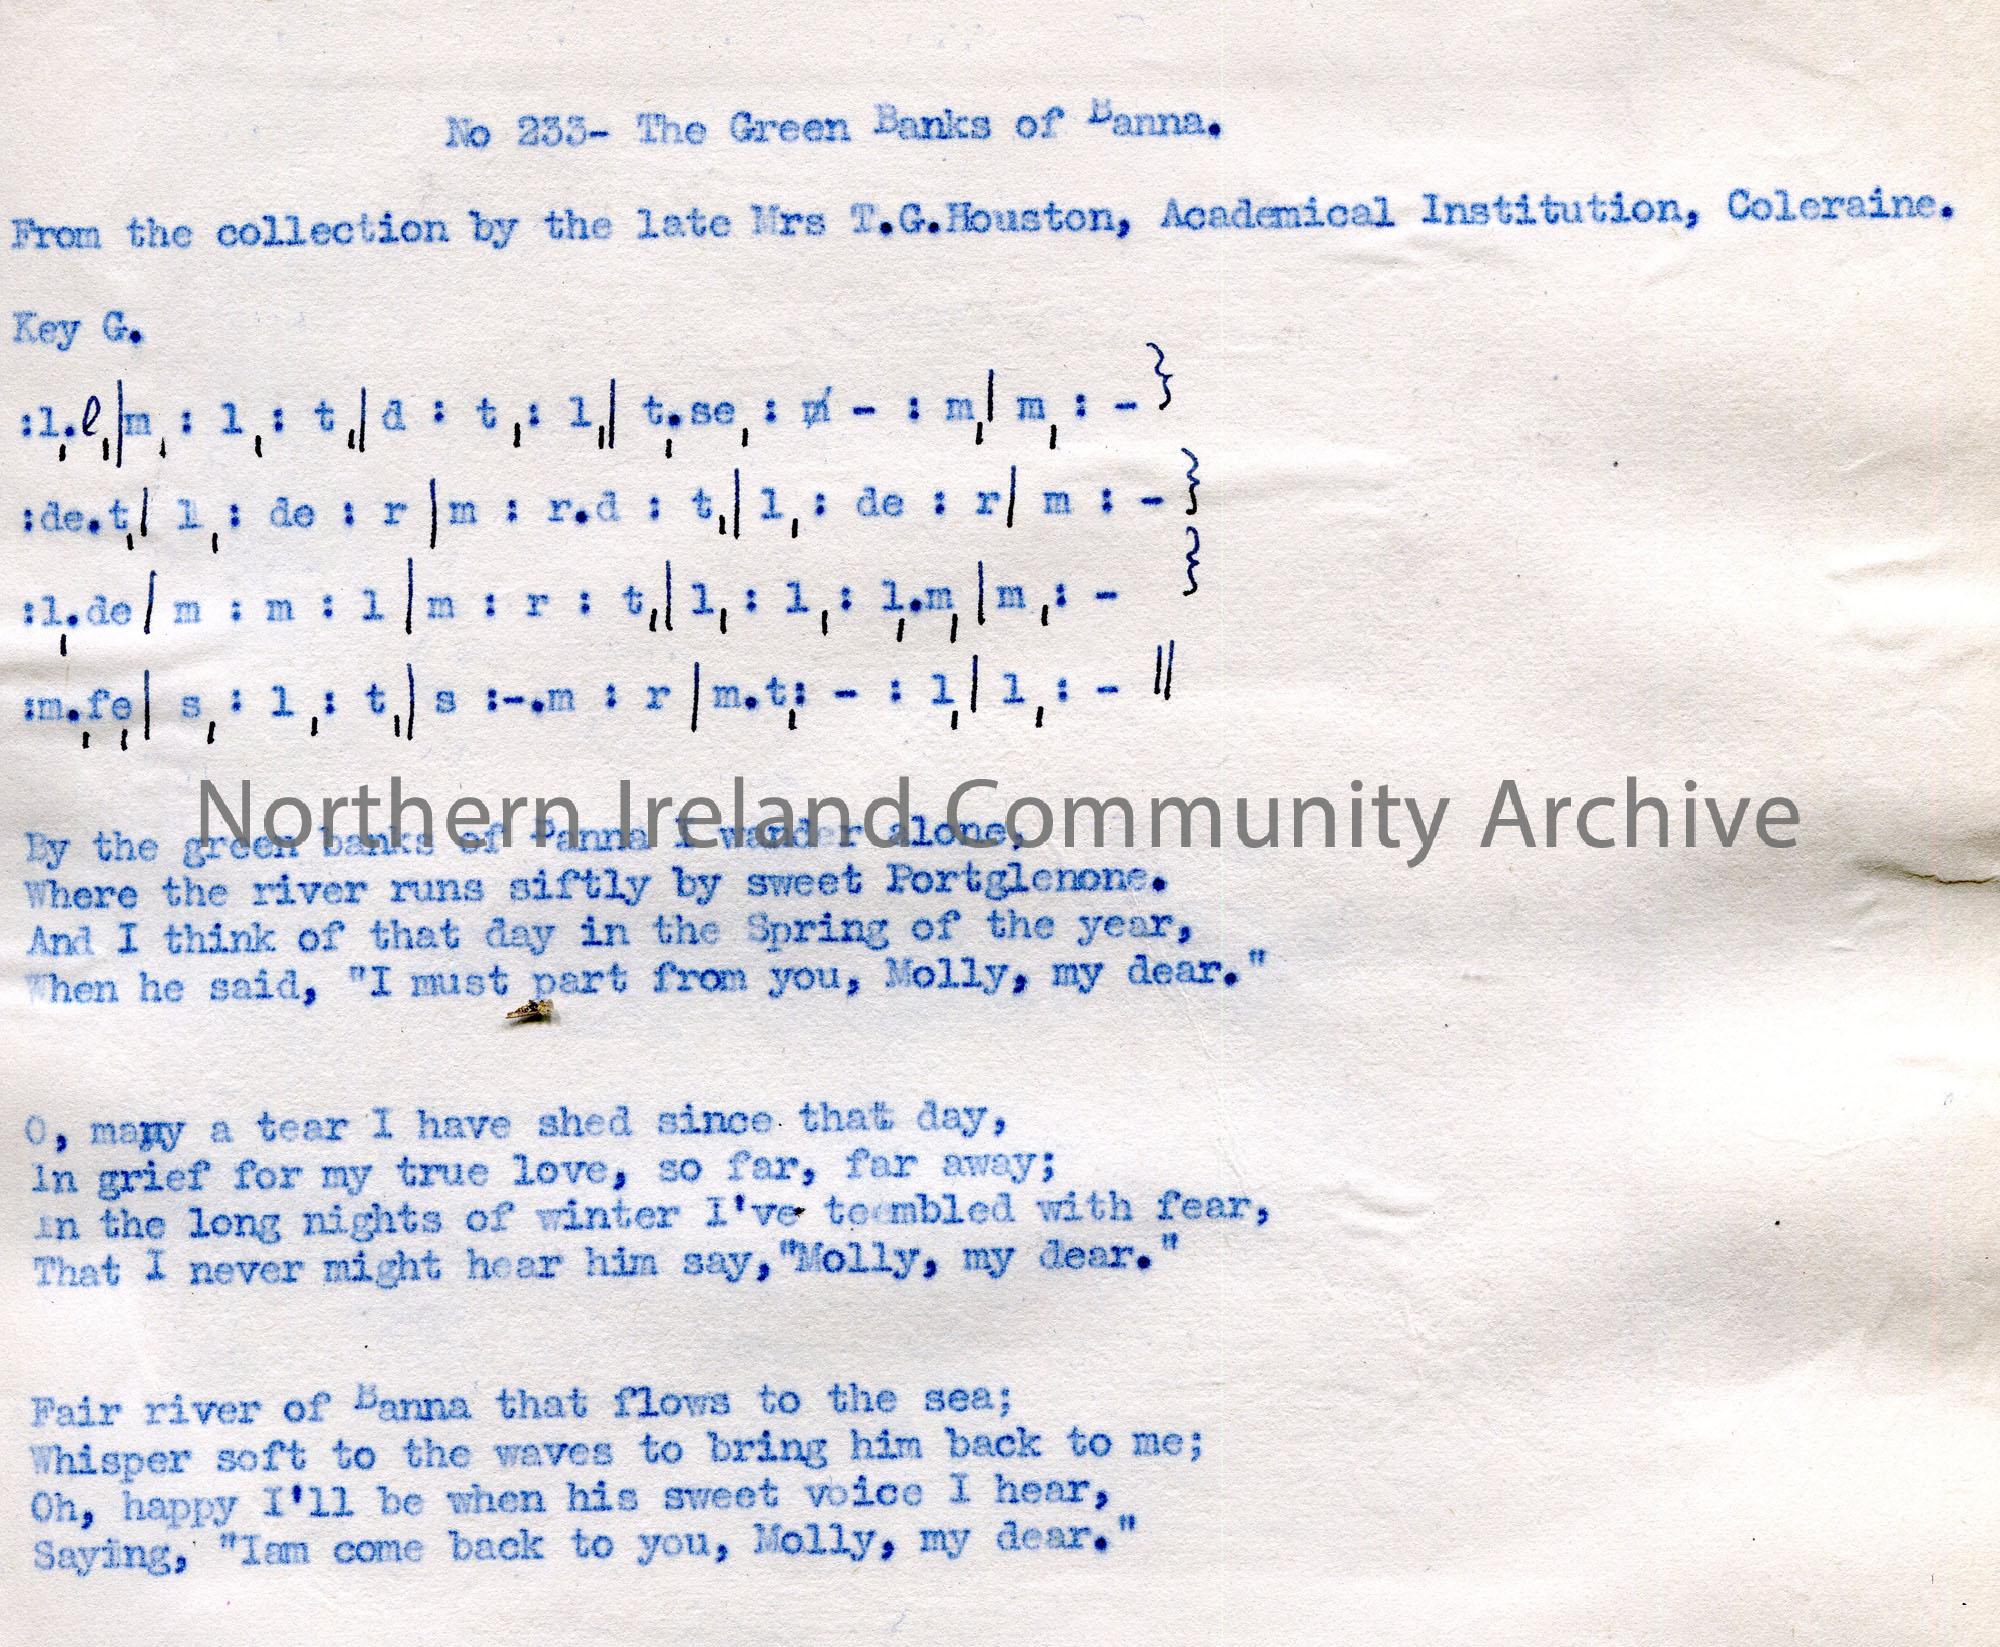 No 233- The Green Banks of Banna.
From the collection by the late Mrs T.G.Houston, Academical Institution, Coleraine.
Key G.
:l,.l,|m, : l, : t,| d : t, : l,| t,.se, : m - : m,| m, : - }
:de.t,| l, : de : r |m : r.d : t,| l, : de : r| m : - }
:l,.de| m : m : l |m : r : t,| l, : l, : l,.m, |m, : - }
:m,.fe,| s, : l, : t,| s :-.m : r |m.t,: - : l,| l, : - ||
Northern Ireland Community Archive
By the green banks of Banna I wander alone,
Where the river runs siftly by sweet Portglenone.
And I think of that day in the Spring of the year,
When he said, "I must part from you, Molly, my dear."
O, many a tear I have shed since that day,
In grief for my true love, so far, far away;
In the long nights of winter I've tembled with fear,
That I never might hear him say,"Molly, my dear."
Fair river of Banna that flows to the sea;
Whisper soft to the waves to bring him back to me;
Oh, happy I'll be when his sweet voice I hear,
Saying, "Iam come back to you, Molly, my dear."